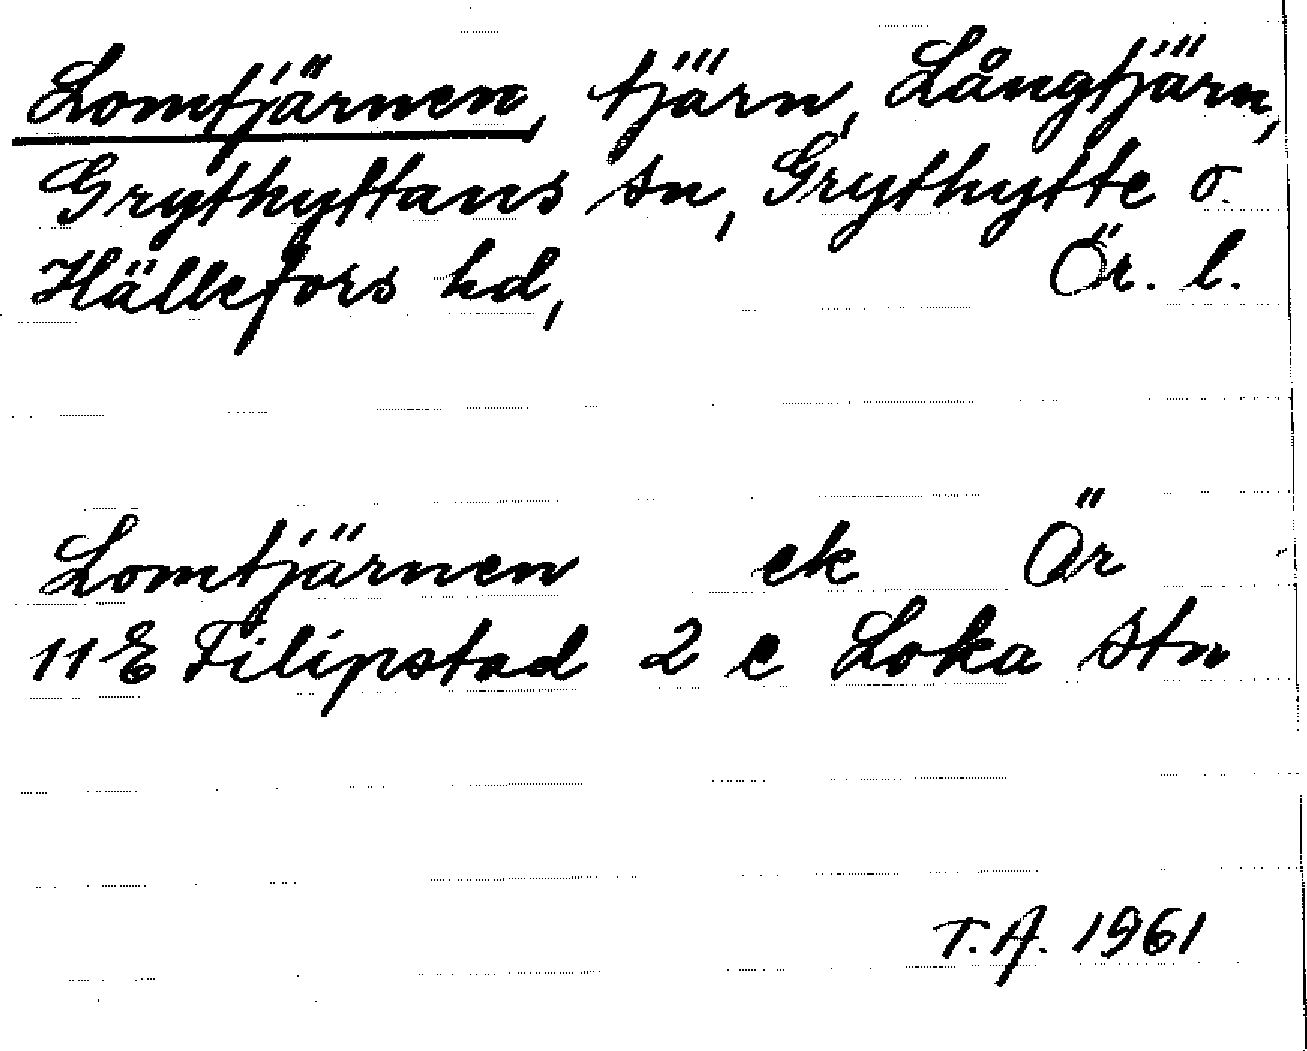 Lomtjärnen, tjärn, Långtjärn,
Grythyttans sn, Grythytte o.
Hällefors hd, Ör. l.
Lomtjärnen ek Ör
11E Filipstad 2 e Loka stn
T.A. 1961